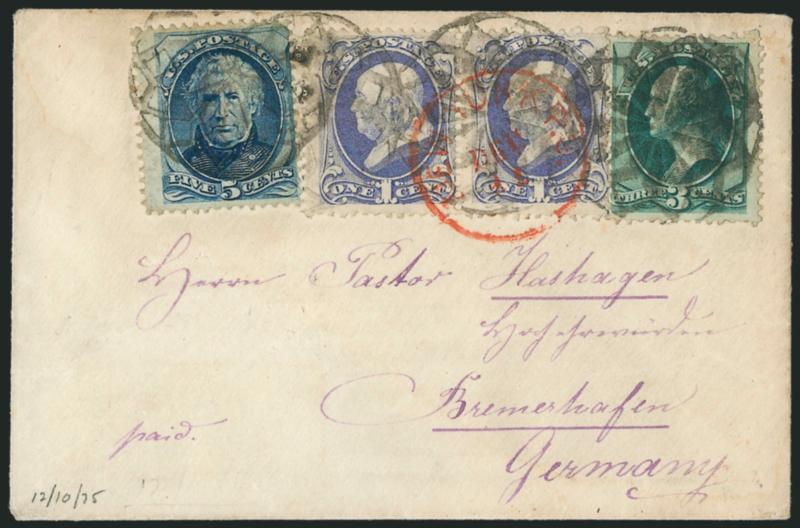 U.S. POSTAGE
FIVE 5 CENTS
U.S. POSTAGE
ONE 1 CENT
U.S. POSTAGE
ONE 1 CENT
U.S. POSTAGE
THREE 3 CENTS
Herrn Pastor Hashagen
Hochehrwürden
Bremerhafen
paid.
Germany
12/10/75